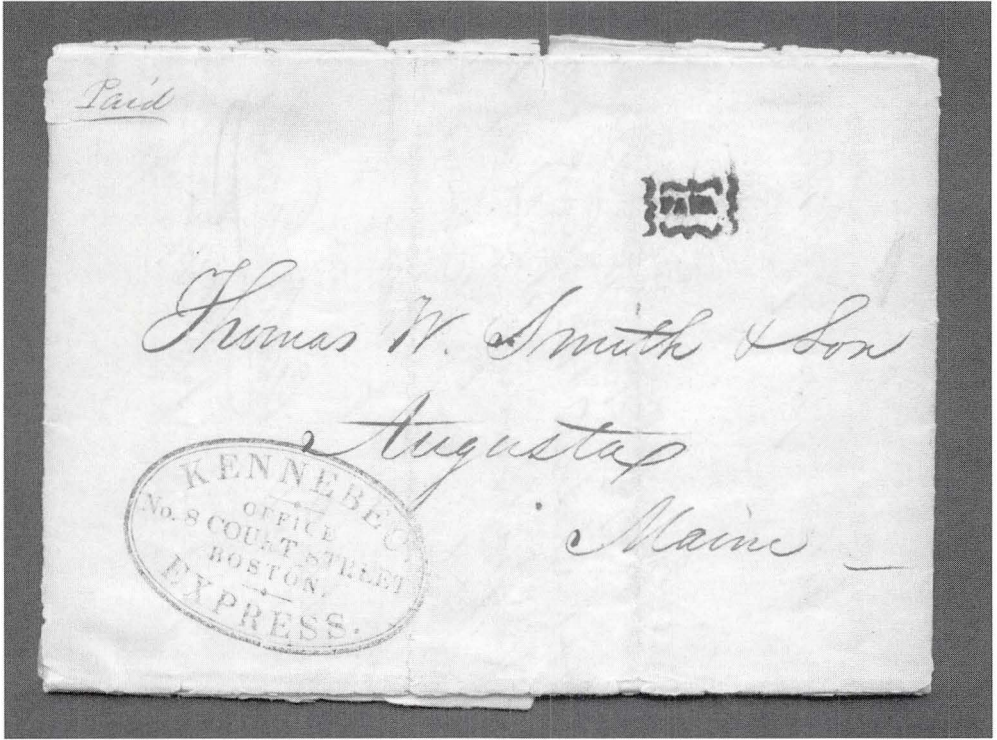 Paid
PAID
Thomas W. Smith & Son
Augusta
Maine
KENNEBEC
OFFICE
No. 8 COURT STREET
BOSTON.
EXPRESS.